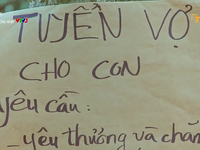 TUYỂN VỢ
CHO CON
yêu cầu:
- yêu thưởng và chăm